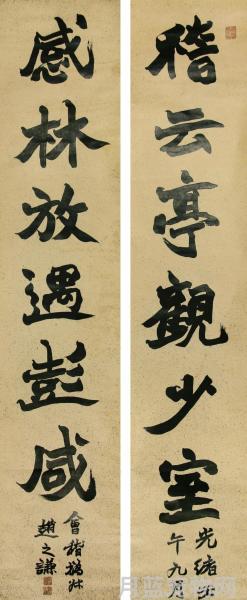 稽云亭觀少室
光緒壬
午九月
感林放遇彭咸
會稽撝叔
趙之謙